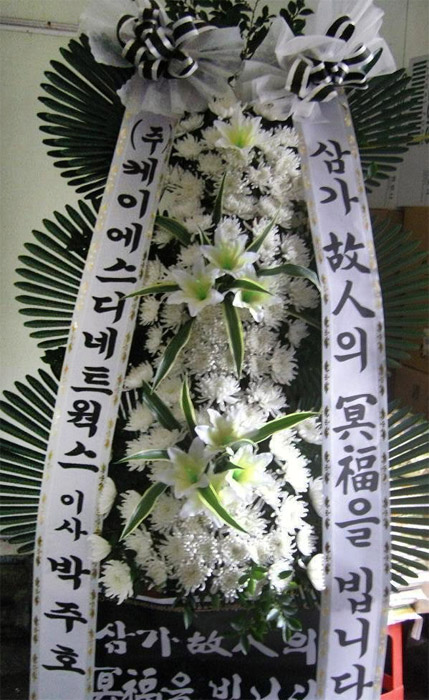 (주)케이에스디네트웍스 이사 박주호
삼가 故人의 冥福을 빕니다
삼가 故人의
冥福을 빕니다